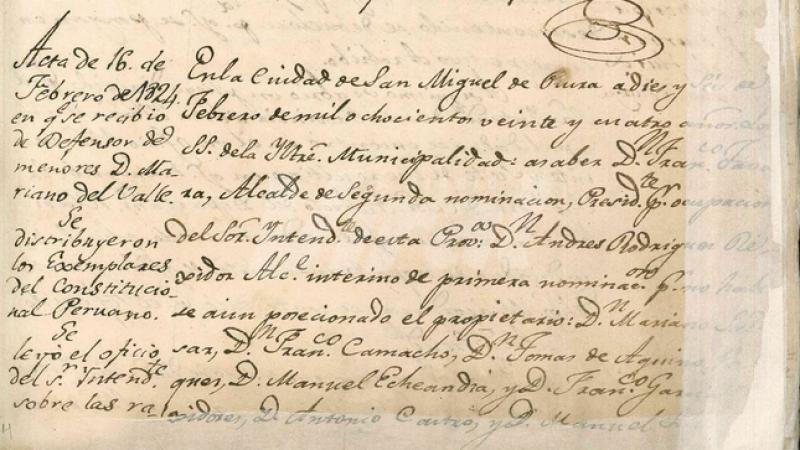 Acta de 16. de
Febrero de 1824.
en q.e se recibio
de Defensor de
menores D. Ma-
riano del Valle.
Se
distribuyeron
los Exemplares
del Constitucio-
nal Peruano.
Se
leyó el oficio
del s.r Intend.te
sobre las ra-
En la Ciudad de San Miguel de Piura a dies y Seis de
Febrero de mil ochocientos veinte y cuatro años. Los
SS. de la Ytre. Municipalidad: a saber D.n Fran.co
ra, Alcalde de Segunda nominacion, Presid.te p.r ocupacion
del Sor. Yntend.te de esta Prov.a D.n Andres Rodriguez Re-
xidor Alc.e interino de primera nominac.on p.r no haber-
se aun posecionado el propietario: D.n Mariano
sar, D.n Fran.co Camacho, D.n Tomas de Aquino
quer, D. Manuel Echeandia, y D. Fran.co Garcia
sidores, D. Antonio Castro, y D. Manuel